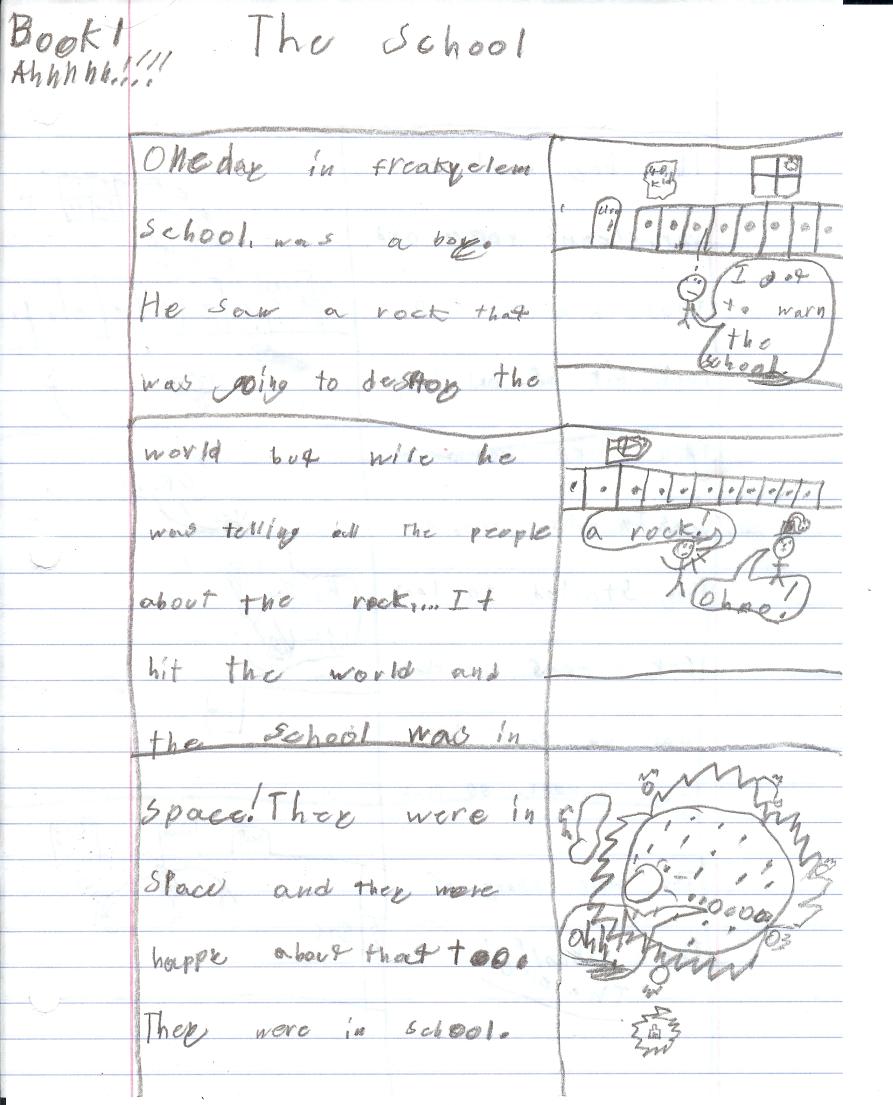 Book!
Ahhhhh.!!!!
The School
One day in freaky elem
school. was a boy.
He saw a rock that
was going to destroy the
I got
to warn
the
school
world but wile he
was telling all The people
about the rock,... It
hit the world and
the school was in
a rock!
oh no!
space! They were in
space and they were
happy about that too.
They were in school.
ahh